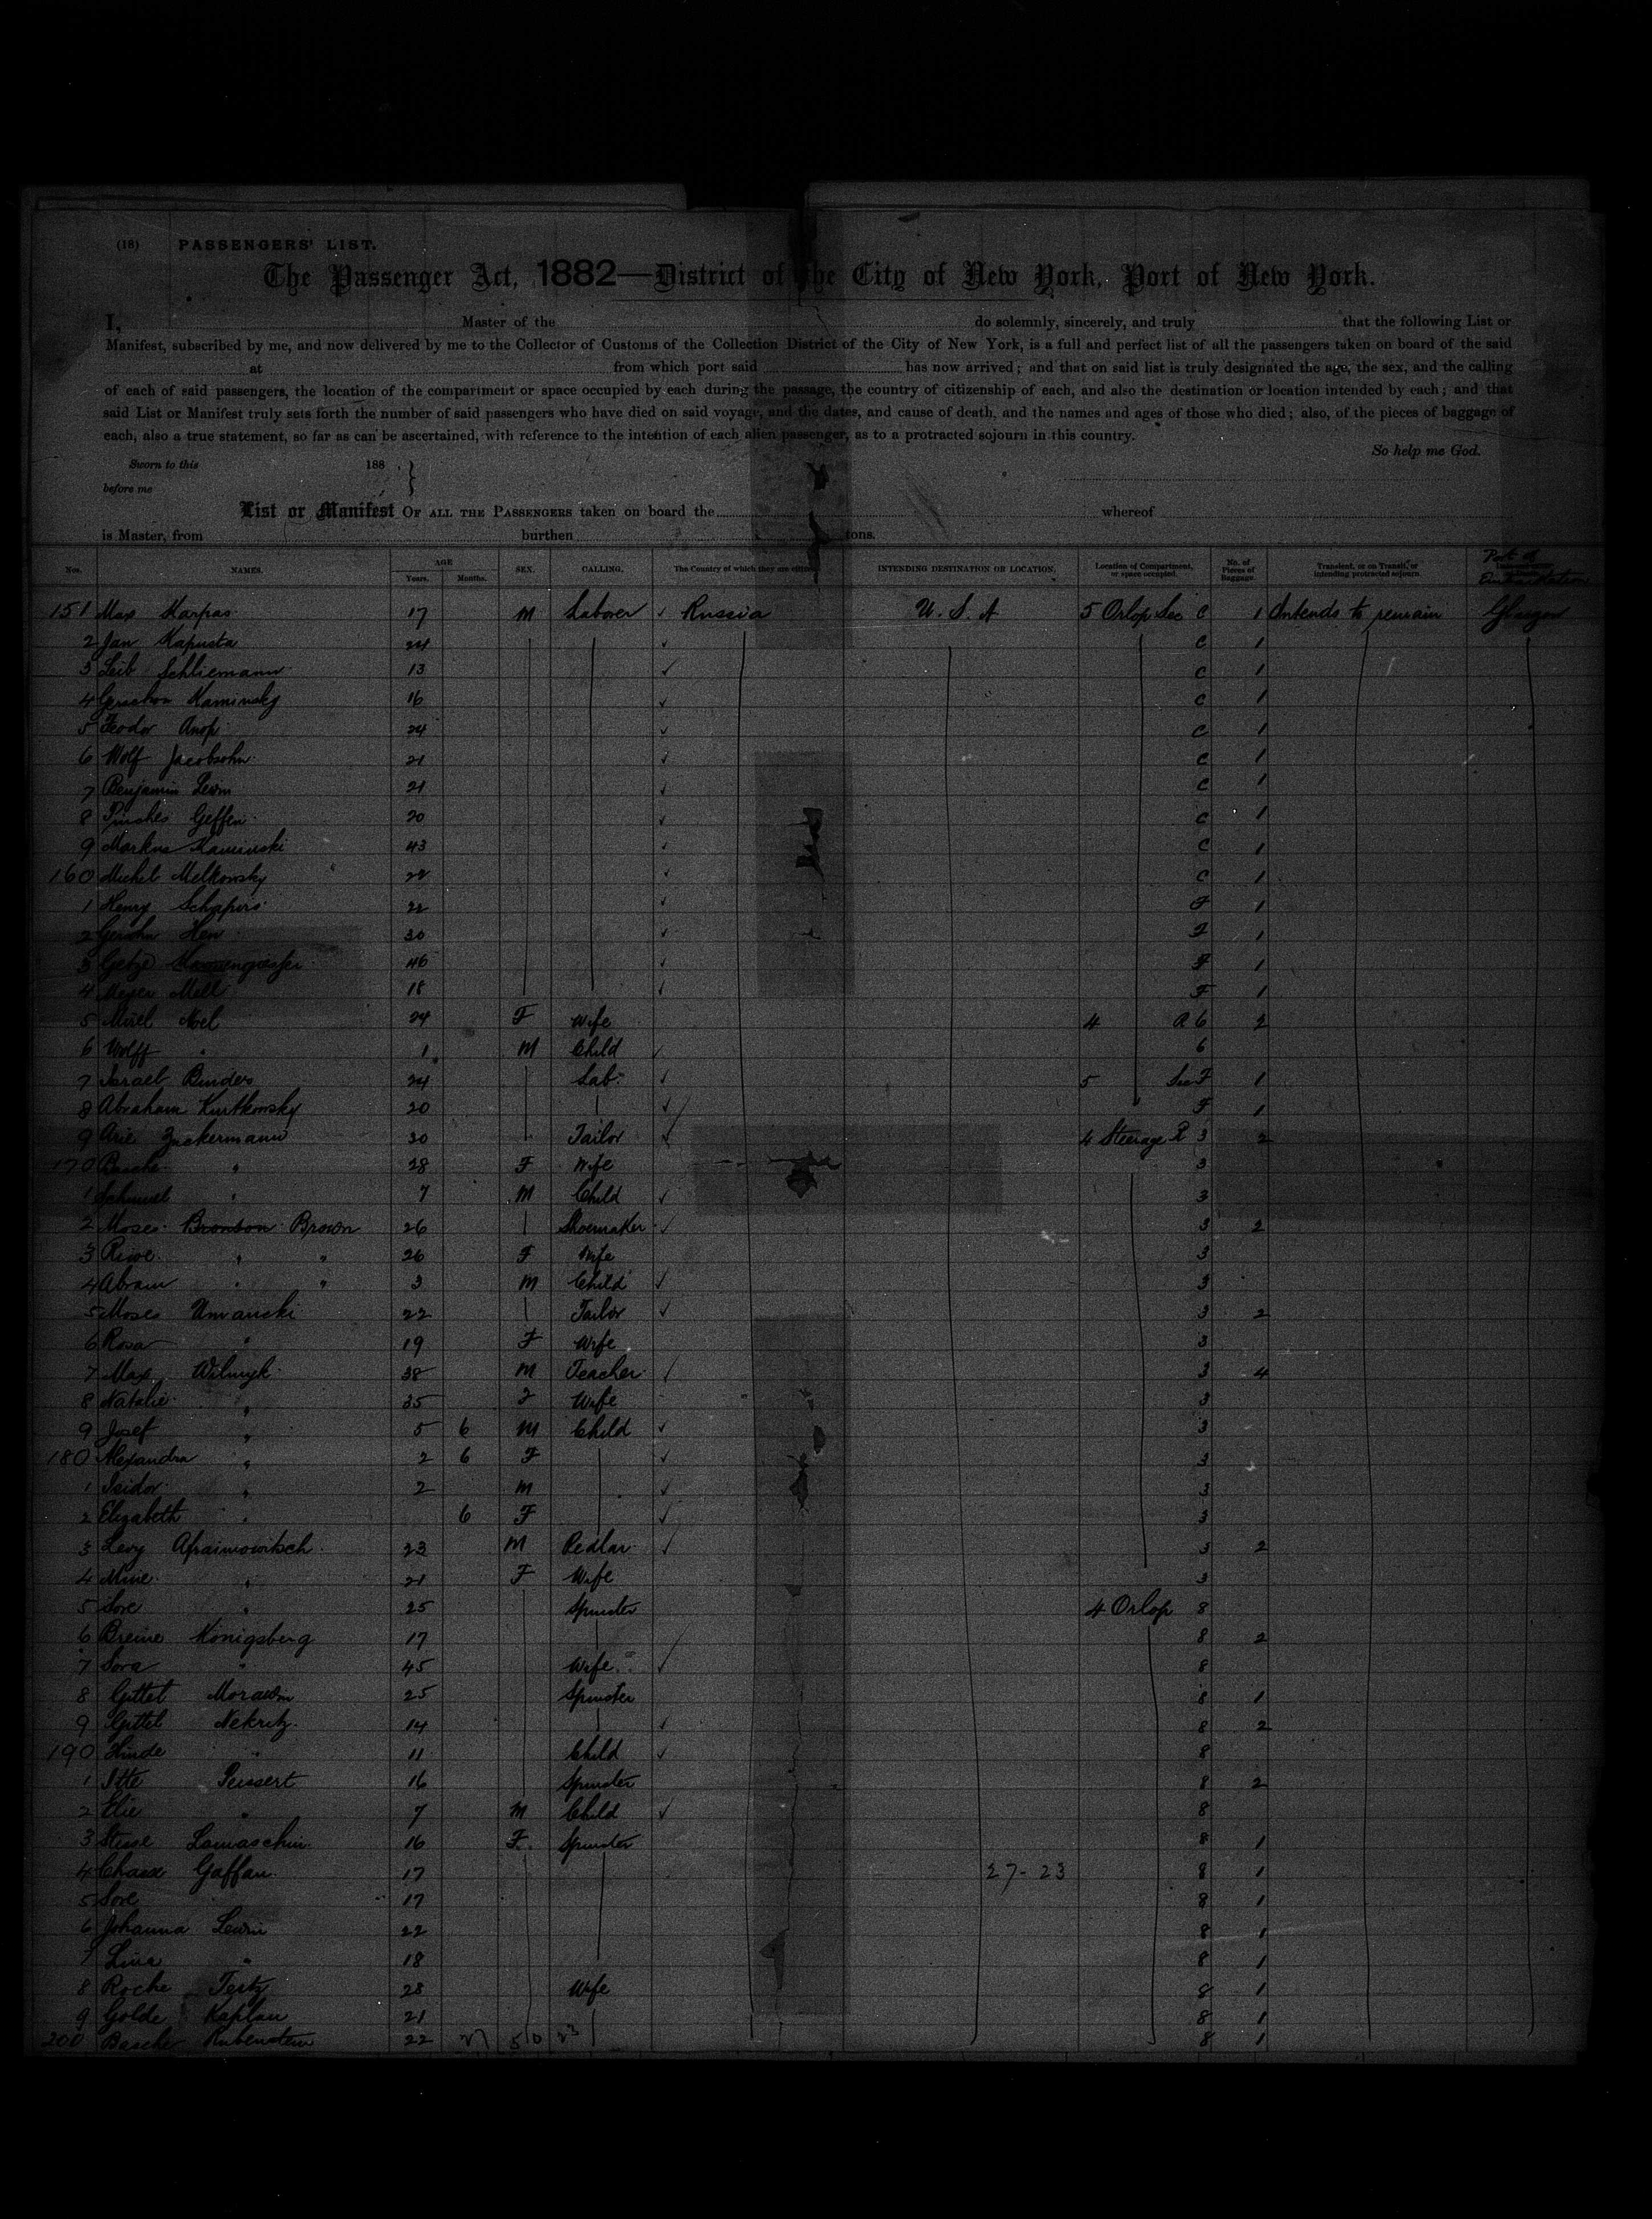 (18) PASSENGERS' LIST.
The Passenger Act, 1882—District of the City of New York, Port of New York.
I, Master of the do solemnly, sincerely, and truly that the following List or
Manifest, subscribed by me, and now delivered by me to the Collector of Customs of the Collection District of the City of New York, is a full and perfect list of all the passengers taken on board of the said
at from which port said has now arrived; and that on said list is truly designated the age, the sex, and the calling
of each of said passengers, the location of the compartment or space occupied by each during the passage, the country of citizenship of each, and also the destination or location intended by each; and that
said List or Manifest truly sets forth the number of said passengers who have died on said voyage, and the dates, and cause of death, and the names and ages of those who died; also, of the pieces of baggage of
each, also a true statement, so far as can be ascertained, with reference to the intention of each alien passenger, as to a protracted sojourn in this country.
So help me God.
Sworn to this 188 }
before me
List or Manifest OF ALL THE PASSENGERS taken on board the whereof
is Master, from burthen tons.
Nos. NAMES. AGE Years. Months. SEX. CALLING. The Country of which they are citizens. INTENDING DESTINATION OR LOCATION. Location of Compartment, or space occupied. No. of Pieces of Baggage. Transient, or on Transit, or intending protracted sojourn. Port of Embarkation
151 Max Karpas 17 M Laborer Russia U.S.A 5 Orlop Sec C 1 Intends to remain Glasgow
2 Jan Kapusta 24 C 1
3 Leib Schliemann 13 C 1
4 Gerschon Kaminsky 16 C 1
5 Feodor Anop 24 C 1
6 Wolf Jacobsohn 21 C 1
7 Benjamin 21 C 1
8 Pinches Geffen 20 C 1
9 Markus Kaminski 43 C 1
160 Michel Melkowsky 22 C 1
1 Henry Schapiro 22 F 1
2 Gerschn Hen 30 F 1
3 Getze 46 F 1
4 Meyer Mell 18 F 1
5 Noel 24 F Wife 4 R 6 2
6 Wolff " 1 M Child 6
7 Israel Binder 24 Lab. 5 Sec F 1
8 Abraham Kurtkowsky 20 F 1
9 Arie Zuckermann 30 Tailor 4 Steerage R 3 2
170 Basche " 28 F Wife 3
1 Schmuel " 7 M Child 3
2 Moses Bronson Brown 26 Shoemaker 3 2
3 Riwe " " 26 F Wife 3
4 Abram " " 3 M Child 3
5 Moses Umanski 22 Tailor 3 2
6 Rosa " 19 F Wife 3
7 Max Wilmyk 38 M Teacher 3 4
8 Natalie " 35 F Wife 3
9 Josef " 5 6 M Child 3
180 Alexandra " 2 6 F 3
1 Isidor " 2 M 3
2 Elizabeth " 6 F 3
3 Levy Afraimowitsch 23 M Pedlar 3 2
4 Mine " 21 F Wife 3
5 Sore " 25 Spinster 4 Orlop 8
6 Breine Königsberg 17 8 2
7 Sora " 45 Wife 8
8 Gittel 25 Spinster 8 1
9 Gittel Nekritz 14 8 2
190 Hinde " 11 Child 8
1 Itte Peissert 16 Spinster 8 2
2 Elie " 7 M Child 8
3 16 F Spinster 8 1
4 Gaffan 17 27-23 8 1
5 Sore " 17 8 1
6 Johanna Lewin 22 8 1
7 Lina " 18 8 1
8 Roche 28 Wife 8 1
9 Golde Kaplan 21 8 1
200 Basche Rubenstein 22 8 1